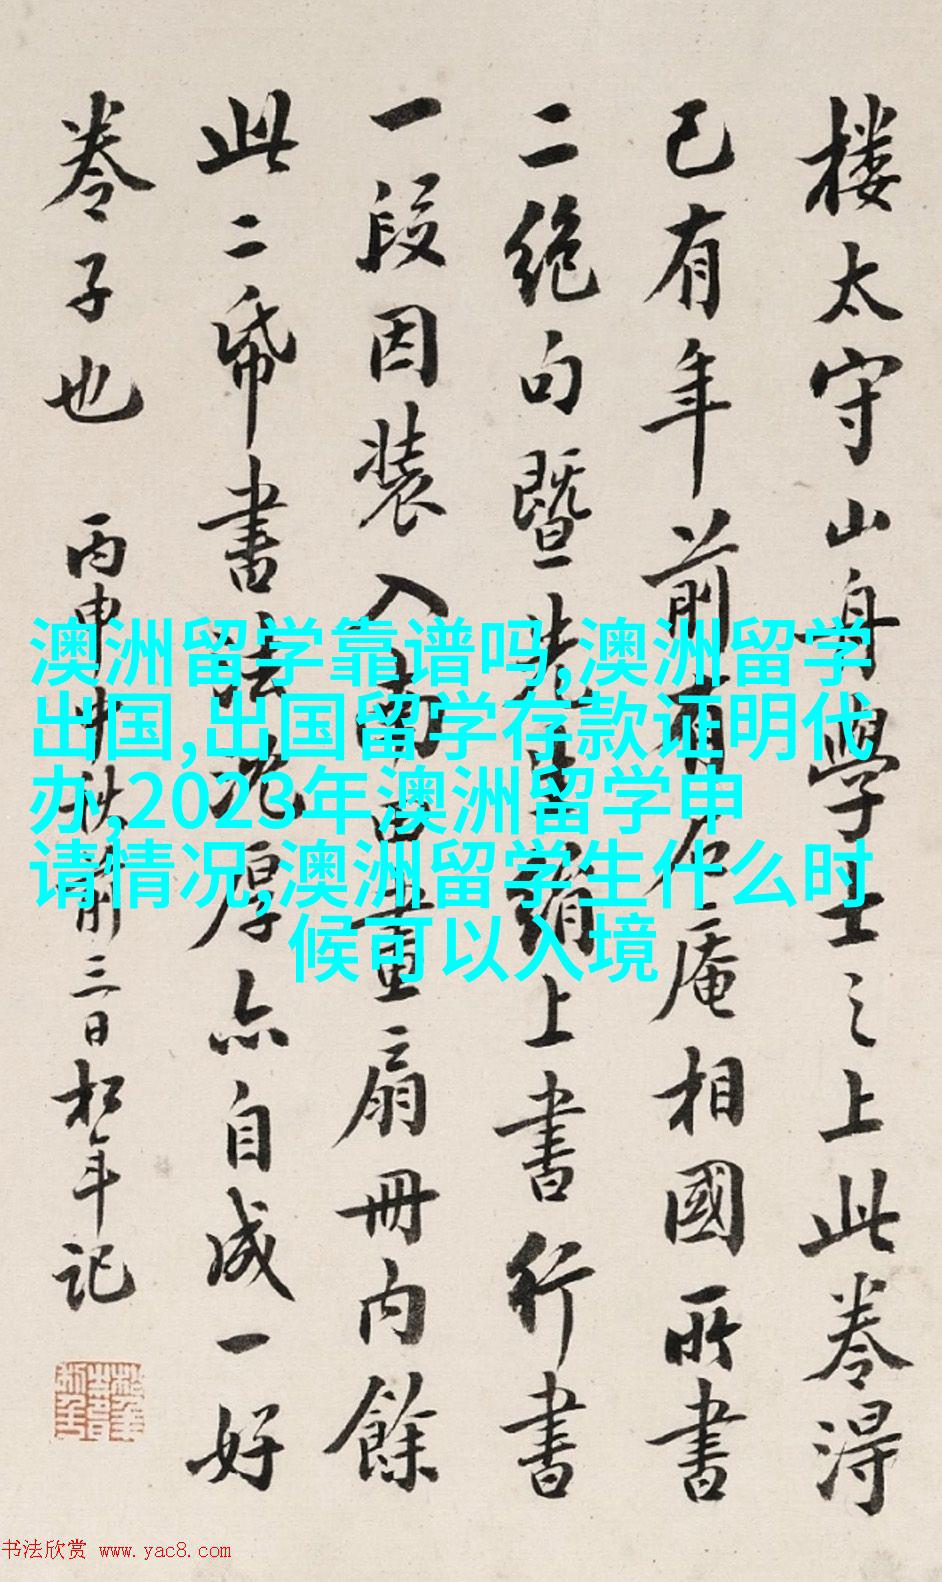 楼太守山舟學士之上此卷得
已有年前有石庵相國所書
二絕句暨先生絹上書行書
一段因裝入南田畫扇冊内餘
此二帋書法沈厚亦自成一好
卷子也
丙申中秋前三日松年記
澳洲留学靠谱吗,澳洲留学
出国,出国留学存款证明代
办,2023年澳洲留学申
请情况,澳洲留学生什么时
候可以入境
书法欣赏 www.yac8.com